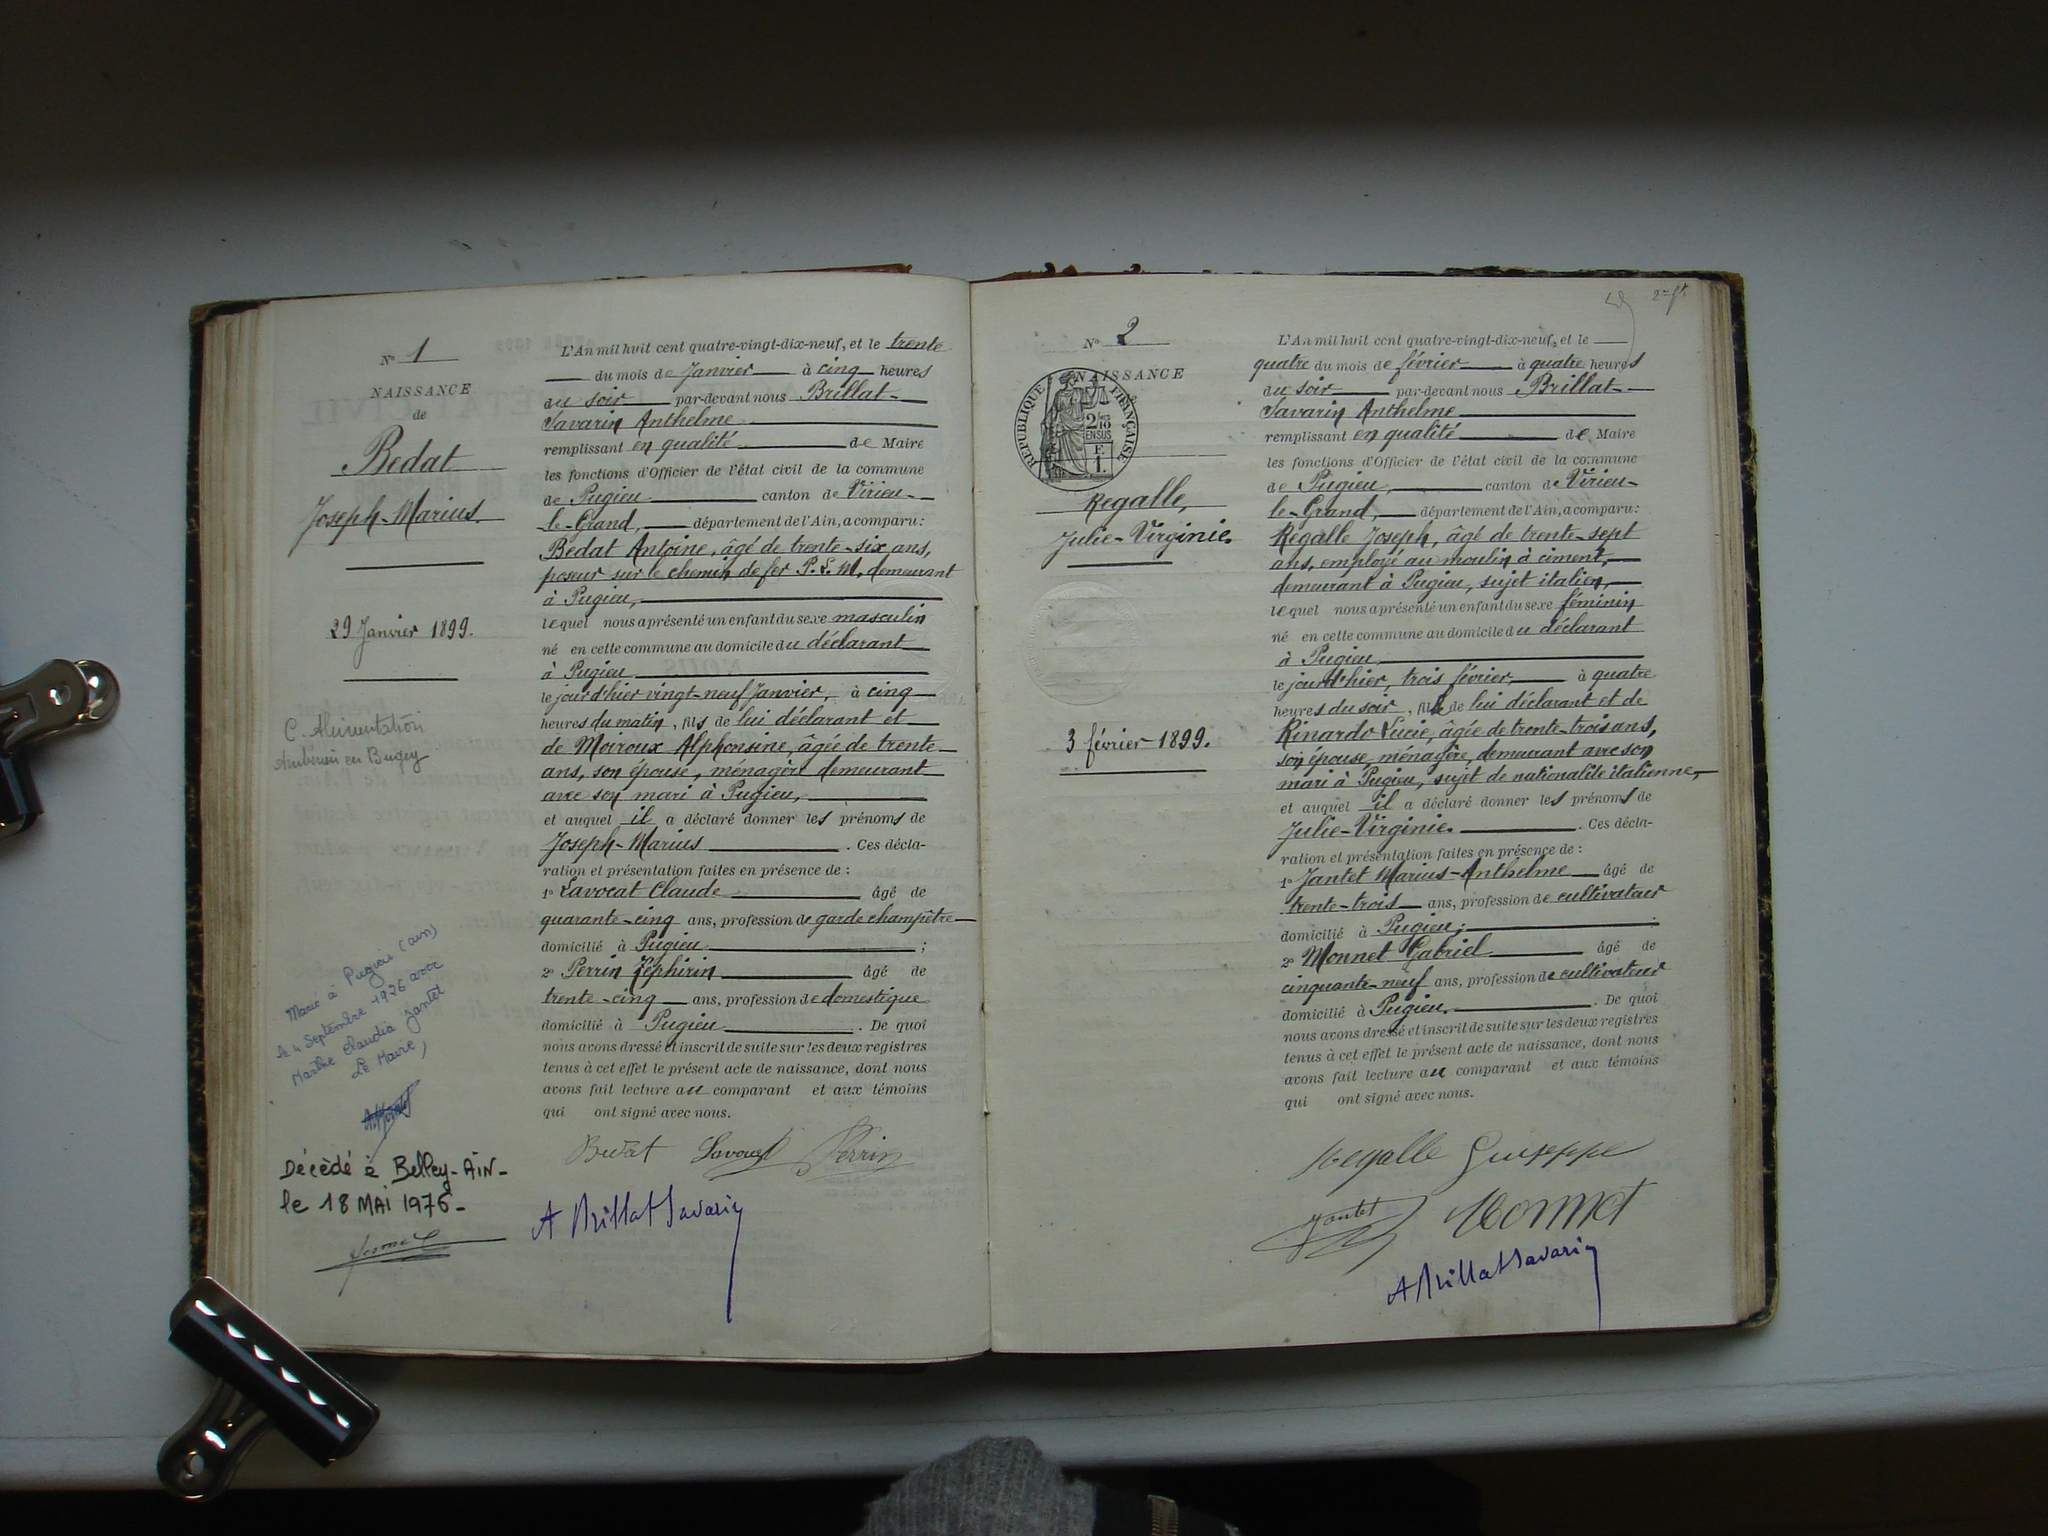 N° 1
NAISSANCE
de
Bedat
Joseph-Marius.
29 Janvier 1899.
C. Alimentation
Ambérieu en Bugey
Marié à Pugieu (ain)
le 4 Septembre 1926 avec
Marthe Claudia Jantet
Le Maire,
Décédé à Belley-AiN-
le 18 MAI 1976-
L'An mil huit cent quatre-vingt-dix-neuf, et le trente
du mois de Janvier à cinq heures
du soir par-devant nous Brillat-
Savarin Anthelme
remplissant en qualité de Maire
les fonctions d'Officier de l'état civil de la commune
de Pugieu canton de Virieu-
le-Grand, département de l'Ain, a comparu:
Bedat Antoine, âgé de trente-six ans,
poseur sur le chemin de fer P. L. M. demeurant
à Pugieu,
lequel nous a présenté un enfant du sexe masculin
né en cette commune au domicile du déclarant
à Pugieu
le jour d'hier vingt-neuf Janvier, à cinq
heures du matin, fils de lui déclarant et
de Moiroux Alphonsine, âgée de trente-
ans, son épouse, ménagère demeurant
avec son mari à Pugieu,
et auquel il a déclaré donner les prénoms de
Joseph-Marius. Ces décla-
ration et présentation faites en présence de :
1° Lavocat Claude âgé de
quarante-cinq ans, profession de garde champêtre
domicilié à Pugieu ;
2° Perrin Zéphirin âgé de
trente-cinq ans, profession de domestique
domicilié à Pugieu. De quoi
nous avons dressé et inscrit de suite sur les deux registres
tenus à cet effet le présent acte de naissance, dont nous
avons fait lecture au comparant et aux témoins
qui ont signé avec nous.
Bedat Lavocat Perrin
A Brillat Savarin
2me ft.
N° 2
NAISSANCE
RÉPUBLIQUE FRANÇAISE
2/10
EN SUS
F.
1.
Regalle,
Julie-Virginie.
3 février 1899.
L'An mil huit cent quatre-vingt-dix-neuf, et le
quatre du mois de février à quatre heures
du soir par-devant nous Brillat-
Savarin Anthelme
remplissant en qualité de Maire
les fonctions d'Officier de l'état civil de la commune
de Pugieu, canton de Virieu-
le-Grand, département de l'Ain, a comparu:
Régalle Joseph, âgé de trente-sept
ans, employé au moulin à ciment,
demeurant à Pugieu, sujet italien,
lequel nous a présenté un enfant du sexe féminin
né en cette commune au domicile du déclarant
à Pugieu
le jour d'hier, trois février, à quatre
heures du soir, fille de lui déclarant et de
Rinardo Lucie, âgée de trente-trois ans,
son épouse, ménagère, demeurant avec son
mari à Pugieu, sujet de nationalité italienne,
et auquel il a déclaré donner les prénoms de
Julie-Virginie. Ces décla-
ration et présentation faites en présence de :
1° Jantet Marius-Anthelme âgé de
trente-trois ans, profession de cultivateur
domicilié à Pugieu;
2° Monnet Gabriel âgé de
cinquante-neuf ans, profession de cultivateur
domicilié à Pugieu. De quoi
nous avons dressé et inscrit de suite sur les deux registres
tenus à cet effet le présent acte de naissance, dont nous
avons fait lecture au comparant et aux témoins
qui ont signé avec nous.
Regalle Guiseppe
Jantet Monnet
A Brillat Savarin